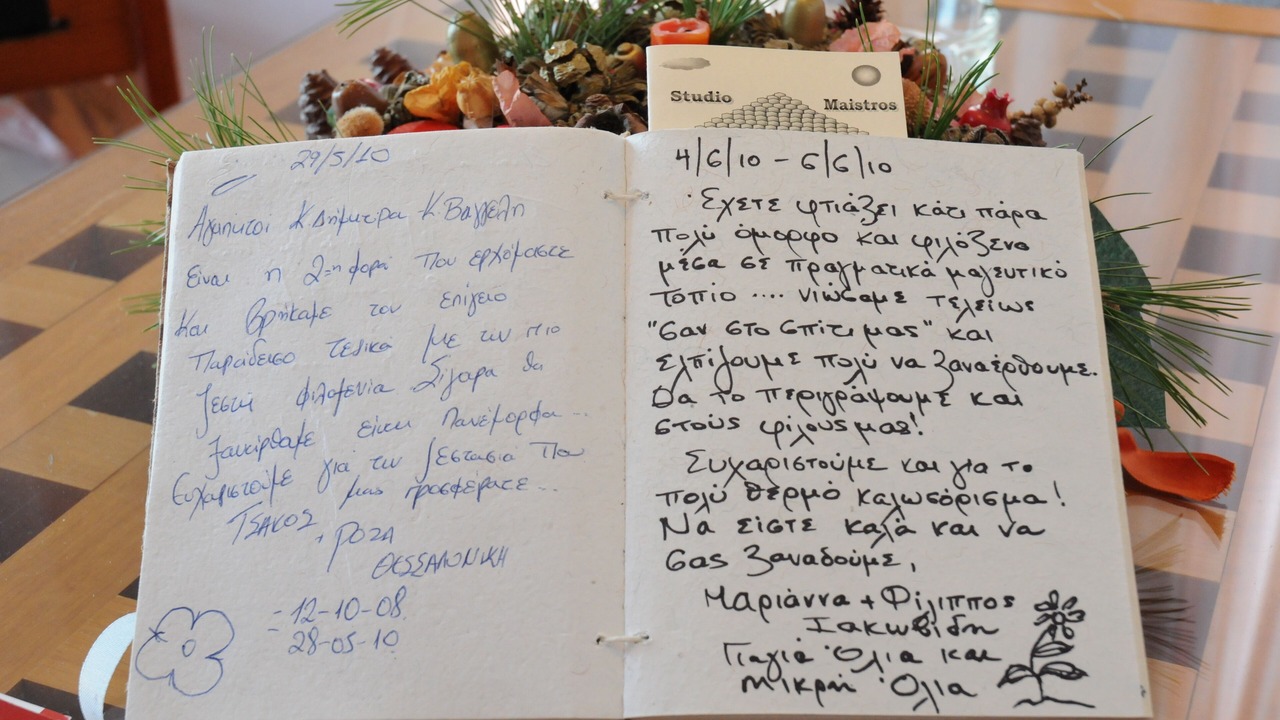 Studio Maistros
29/5/10
Αγαπητοί Κ Δήμητρα Κ. Βαγγέλη
Είναι η 2=η φορά που ερχόμαστε
και βρήκαμε τον επίγειο
Παράδεισο τελικά με την πιο
ζεστή φιλοξενία Σίγουρα θα
ξαναρθουμε είναι Πανέμορφα...
Ευχαριστούμε για την ζεστασιά που
μας προσφέρατε...
ΤΣΑΚΟΣ
+ ΡΟΖΑ
ΘΕΣΣΑΛΟΝΙΚΗ
= 12-10-08
= 28-05-10
4/6/10 - 6/6/10
Έχετε φτιάξει κάτι πάρα
πολύ όμορφο και φιλόξενο
μέσα σε πραγματικά μαγευτικό
τοπίο .... νιώσαμε τελείως
"σαν στο σπίτι μας" και
ελπίζουμε πολύ να ξαναέρθουμε.
Θα το περιγράψουμε και
στούς φίλους μας!
Ευχαριστούμε και για το
πολύ θερμό καλωσόρισμα!
Να είστε καλά και να
σας ξαναδούμε,
Μαριάννα + Φίλιππος
Ιακωβίδη
Γιαγιά Όλια και
μικρή Όλια